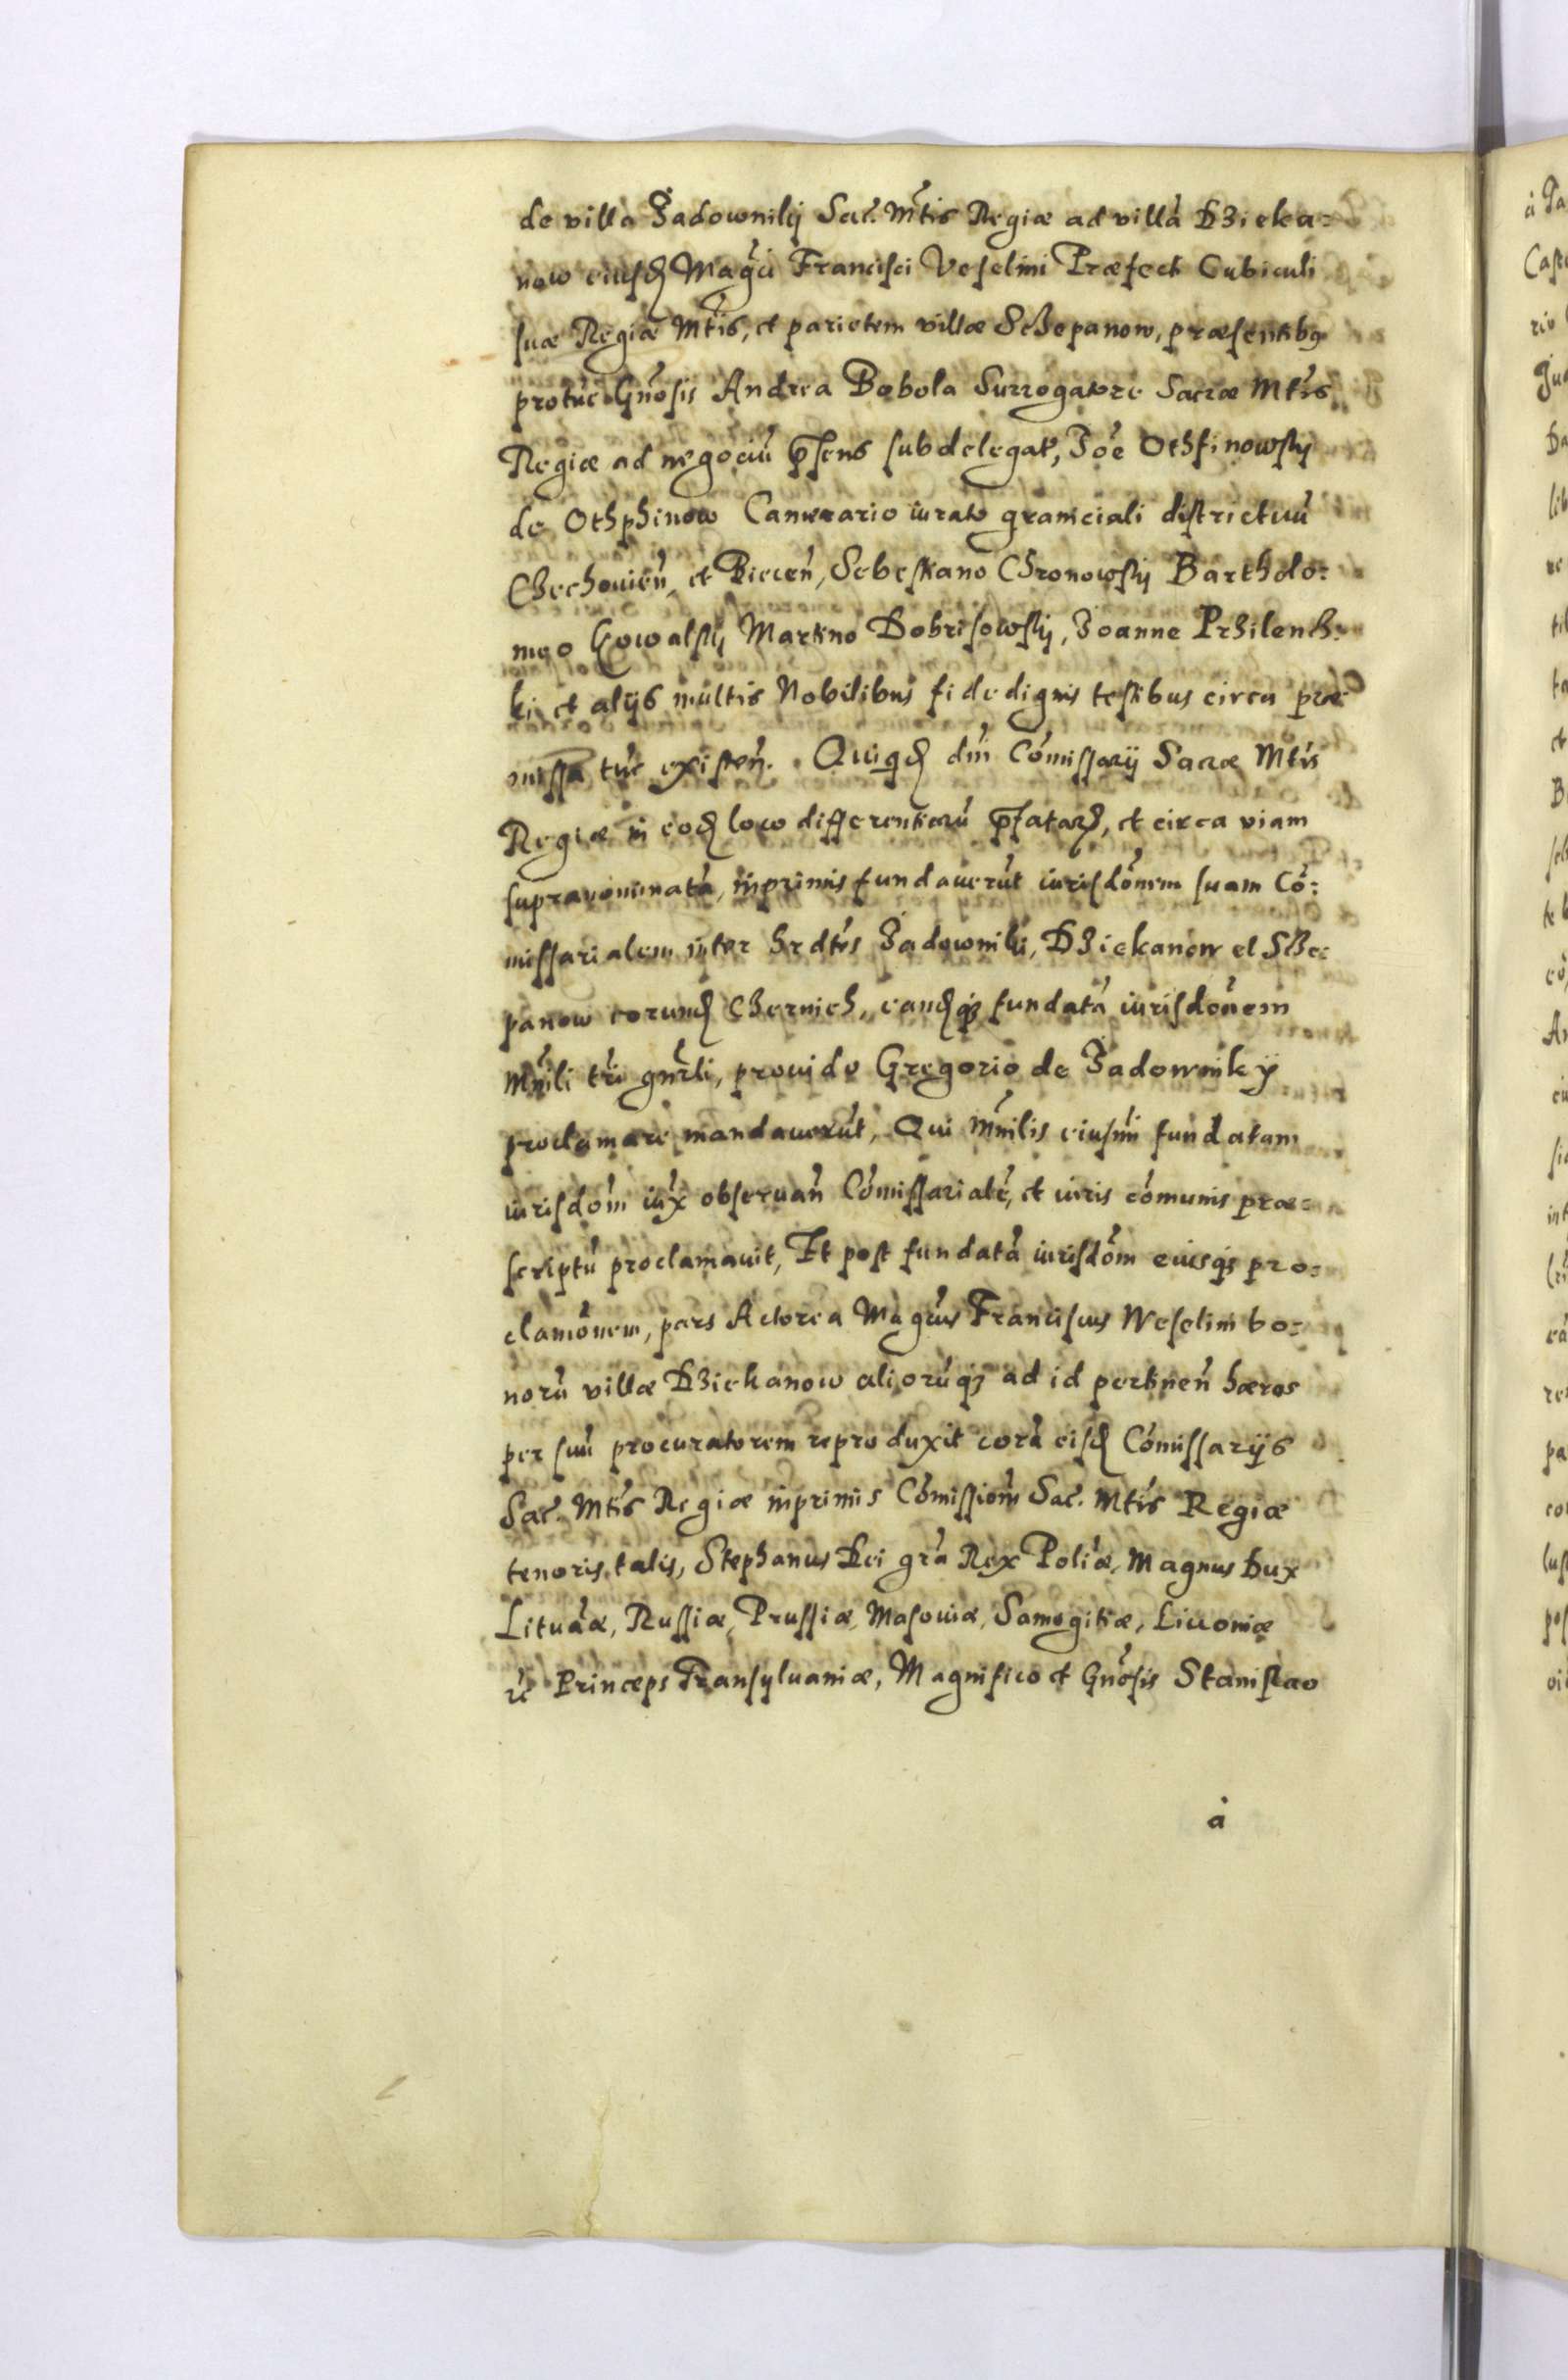 de villa Jadownikj Sac. Mtis Regiæ ad villā Dzieka=
now eiusd Magci Francisci Veselini Præfecti Cubiculi
suæ Regiæ Mtis, et parietem villæ Sczepanow, præsentibq
protūc Gnosis Andrea Bobola Surrogatore Sacræ Mtis
Regiæ ad negociū psens subdelegat, Joe Othfinowskj
de Othphinow Camerario iurato graniciali districtuū
Chechouien, et Biecen, Sebestiano Chronowskj Bartholo=
meo Kowalskj Martino Dobrisowskj, Joanne Przilenc=
ki et alijs multis Nobilibus fide dignis testibus circa præ
missa tūc existen. Quiqd dni Comissarij Sacræ Mtis
Regiæ in eod loco differentiarū pfatarz, et circa viam
supranominatā, inprimis fundauerūt iurisdonem suam Co=
missarialem inter hrdes Jadowniki, Dziekanow et Scze=
panow eorund Czernich, eandqz fundatā iurisdonem
Mnili tri gnrli, prouido Gregorio de Jadownikÿ
proclamare mandauerūt, Qui Mnilis eiusmi fundatam
iurisdom iux obseruan Comissarialē, et iuris comunis præ=
scriptū proclamauit, Et post fundatā iurisdom eiusqz pro=
clamonem, pars Actorea Magcus Franciscus Weselini bo=
norū villæ Dziekanow aliorūqz ad id pertinen hæres
per suū procuratorem reproduxit corā eisd Comissarijs
Sac. Mtis Regiæ inprimis Comissiom Sac. Mtis Regiæ
tenoris talis, Stephanus Dei gra Rex Poliæ, Magnus Dux
Lituaæ, Russiæ, Prussiæ, Masouiæ, Samogitiæ, Liuoniæ
rc Princeps Transyluaniæ, Magnifico et Gnosis Stanislao
à